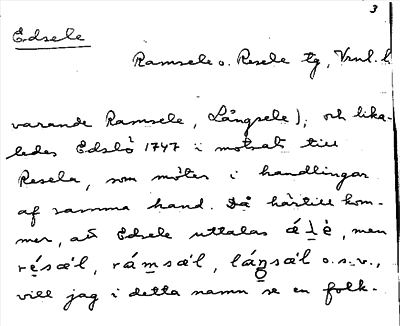 3
Edsele
Ramsele o. Resele tg, Vrnl. l.
varande Ramsele, Långsele); och lika-
ledes Edslö 1747 i motsats till
Resela, som möter i handlingar
af samma hand. Då härtill kom-
mer, att Edsele uttalas é̀lè, men
résæ̀l, rámsæ̀l, láŋsæ̀l o.s.v.,
vill jag i detta namn se en folk-